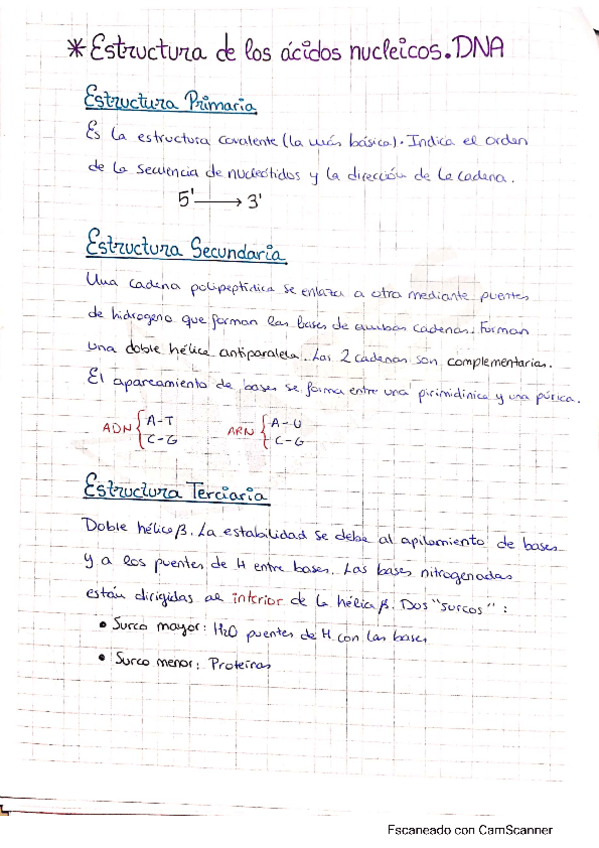 * Estructura de los ácidos nucleicos. DNA
Estructura Primaria
Es la estructura covalente (la más básica). Indica el orden
de la secuencia de nucleótidos y la dirección de la cadena.
5' → 3'
Estructura Secundaria
Una cadena polipeptídica se enlaza a otra mediante puentes
de hidrogeno que forman las bases de ambas cadenas. Forman
una doble hélice antiparalela. Las 2 cadenas son complementarias.
El apareamiento de bases se forma entre una pirimidínica y una púrica.
ADN { A-T ARN { A-U
C-G C-G
Estructura Terciaria
Doble hélice β. La estabilidad se debe al apilamiento de bases
y a los puentes de H entre bases. Las bases nitrogenadas
están dirigidas al interior de la hélice β. Dos "surcos":
• Surco mayor: H2O puentes de H con las bases
• Surco menor: Proteínas
Escaneado con CamScanner